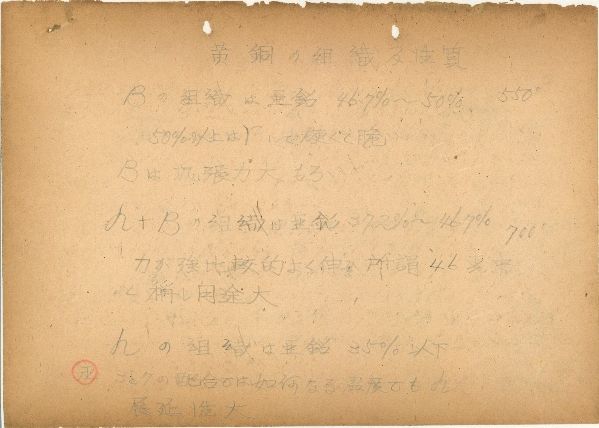 黄銅の組織及性質
Bの組織は亜鉛 46.7%~50% 550°
50%以上は 硬くて脆
Bは抗張力大 もろい
h+Bの組織は亜鉛 37.2%~46.7% 700°
力が強比較的よく伸 所謂 46
称し用途大
hの組織は亜鉛 35%以下
の配合では如何なる温度でもh
展延性大